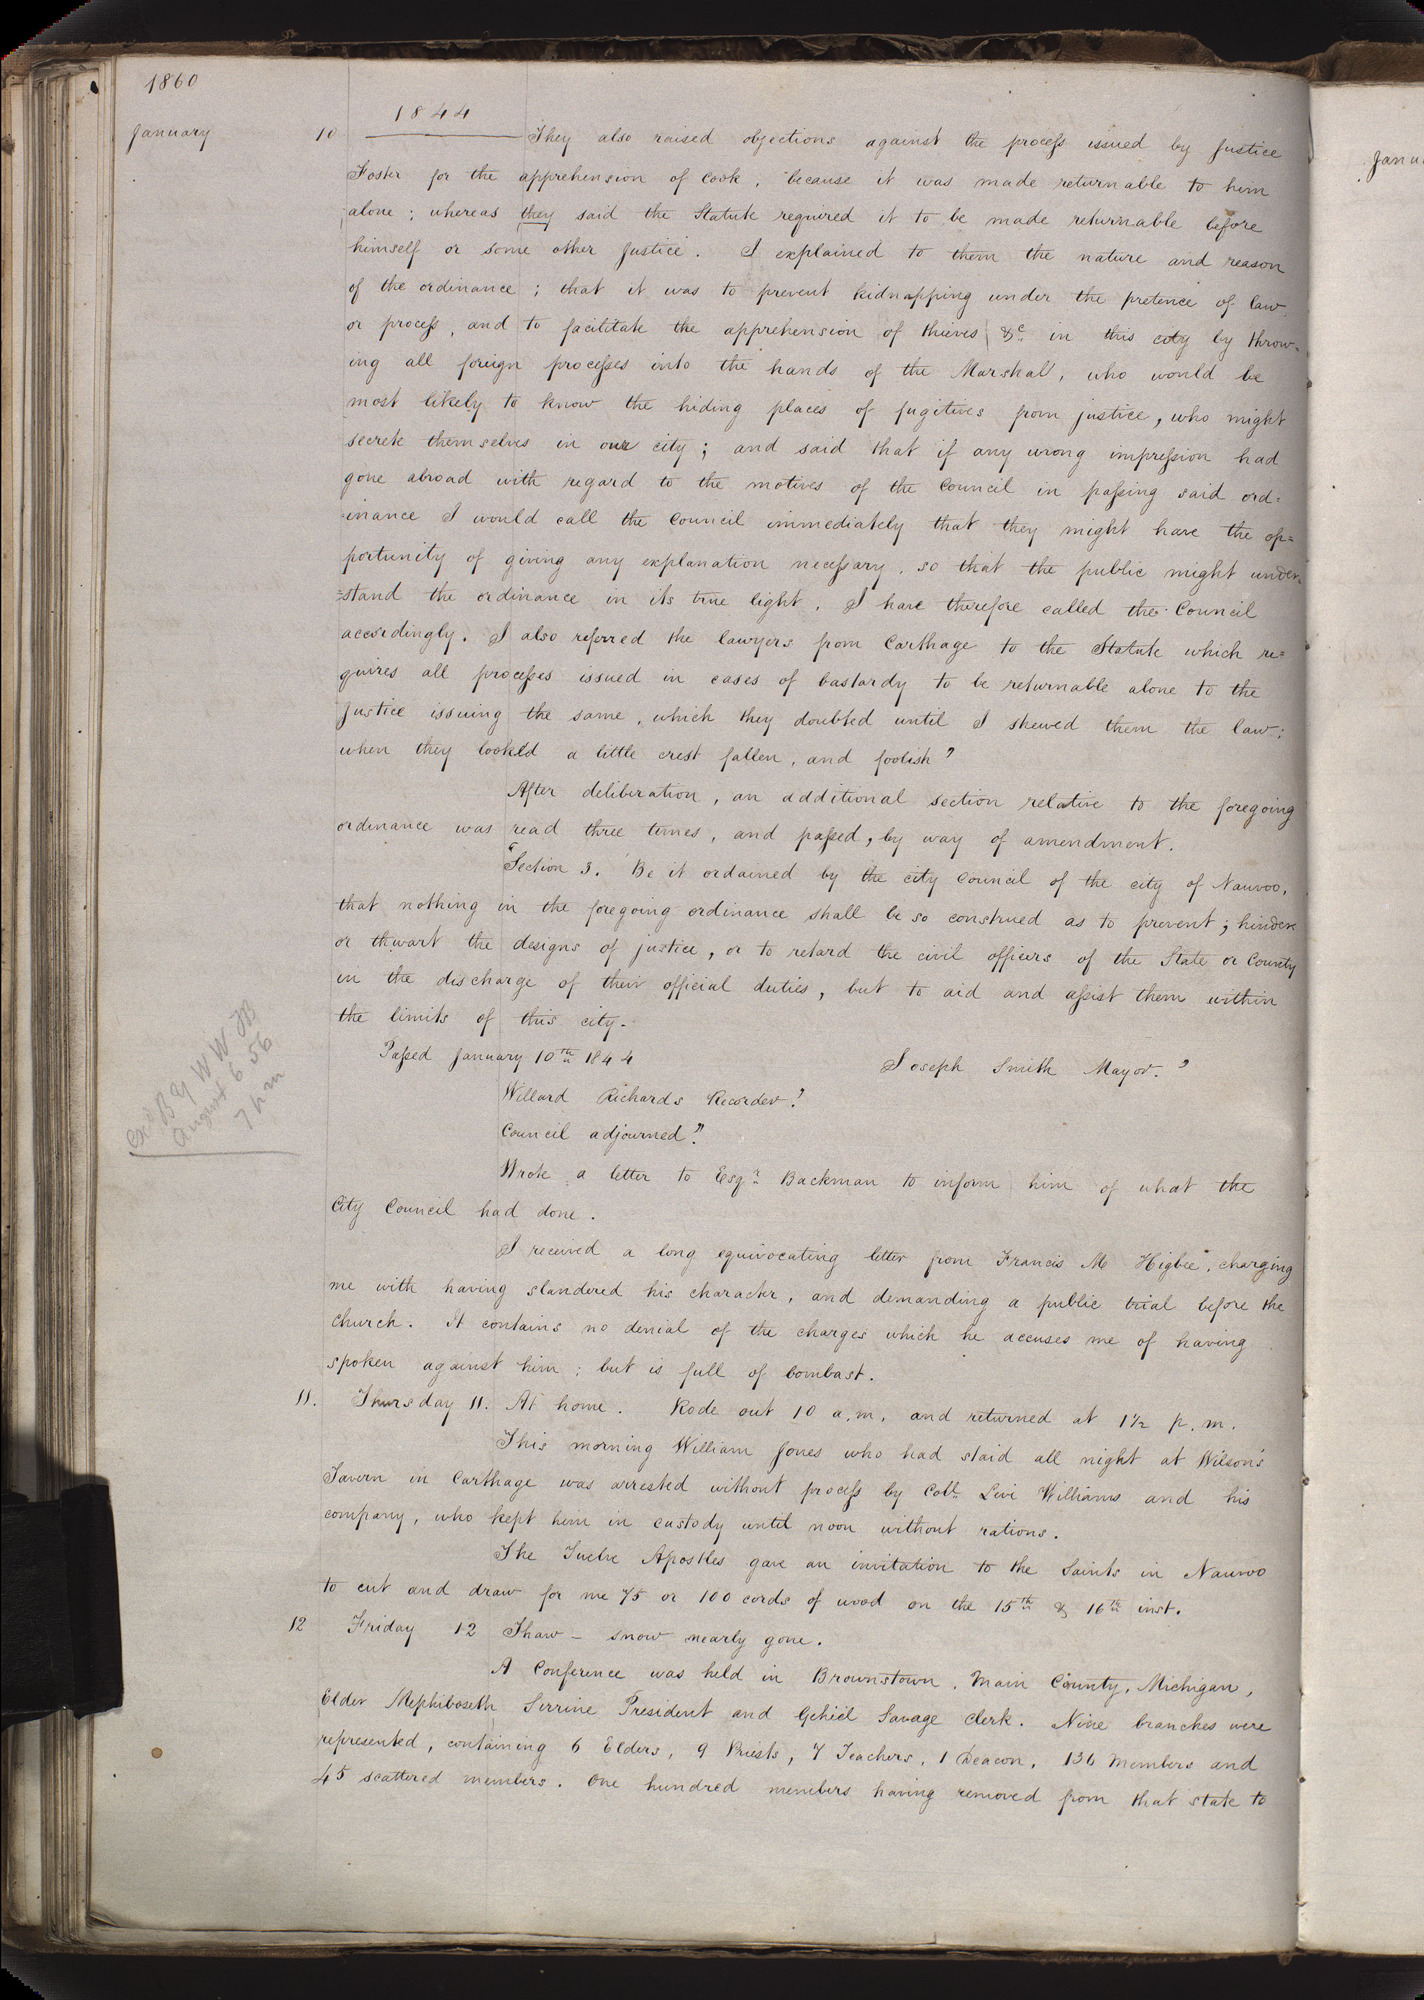 1860
1844
January 10 They also raised objections against the process issued by Justice
Foster for the apprehension of Cook, because it was made returnable to him
alone; whereas they said the Statute required it to be made returnable before
himself or some other Justice. I explained to them the nature and reason
of the ordinance; that it was to prevent kidnapping under the pretence of law
or process, and to facilitate the apprehension of thieves &c in this city by throw=
ing all foreign processes into the hands of the Marshall, who would be
most likely to know the hiding places of fugitives from justice, who might
secrete themselves in our city; and said that if any wrong impression had
gone abroad with regard to the motives of the Council in passing said ord=
=inance I would call the Council immediately that they might have the op=
portunity of giving any explanation necessary, so that the public might under=
=stand the ordinance in its true light. I have therefore called the Council
accordingly. I also referred the lawyers from Carthage to the Statute which re=
quires all processes issued in cases of bastardy to be returnable alone to the
justice issuing the same, which they doubted until I shewed them the law;
when they looked a little crest fallen, and foolish"
After deliberation, an additional section relative to the foregoing
ordinance was read three times, and passed, by way of amendment.
"Section 3. Be it ordained by the city Council of the city of Nauvoo,
that nothing in the foregoing ordinance shall be so construed as to prevent, hinder
or thwart the designs of justice, or to retard the civil officers of the State or County
in the discharge of their official duties, but to aid and assist them within
the limits of this city.
Passed January 10th 1844 Joseph Smith Mayor."
Willard Richards Recorder!
Council adjourned".
Wrote a letter to Esqr Backman to inform him of what the
City Council had done.
I received a long equivocating letter from Francis M Higbee, charging
me with having slandered his character, and demanding a public trial before the
church. It contains no denial of the charges which he accuses me of having
spoken against him; but is full of bombast.
11. Thursday 11. At home. Rode out 10 a.m. and returned at 1½ p.m.
This morning William Jones who had staid all night at Wilson's
Tavern in Carthage was arrested without process by Coll Levi Williams and his
company, who kept him in custody until noon without rations.
The Twelve Apostles gave an invitation to the Saints in Nauvoo
to cut and draw for me 75 or 100 cords of wood on the 15th & 16th inst.
12 Friday 12 Thaw — snow nearly gone.
A Conference was held in Brownstown, Main County, Michigan,
Elder Mephiboseth Serrine President and Gehiel Savage Clerk. Nine branches were
represented, containing 6 Elders, 9 Priests, 7 Teachers, 1 Deacon, 136 members and
45 scattered members. One hundred members having removed from that state to
August 6 56
7 pm
Janu